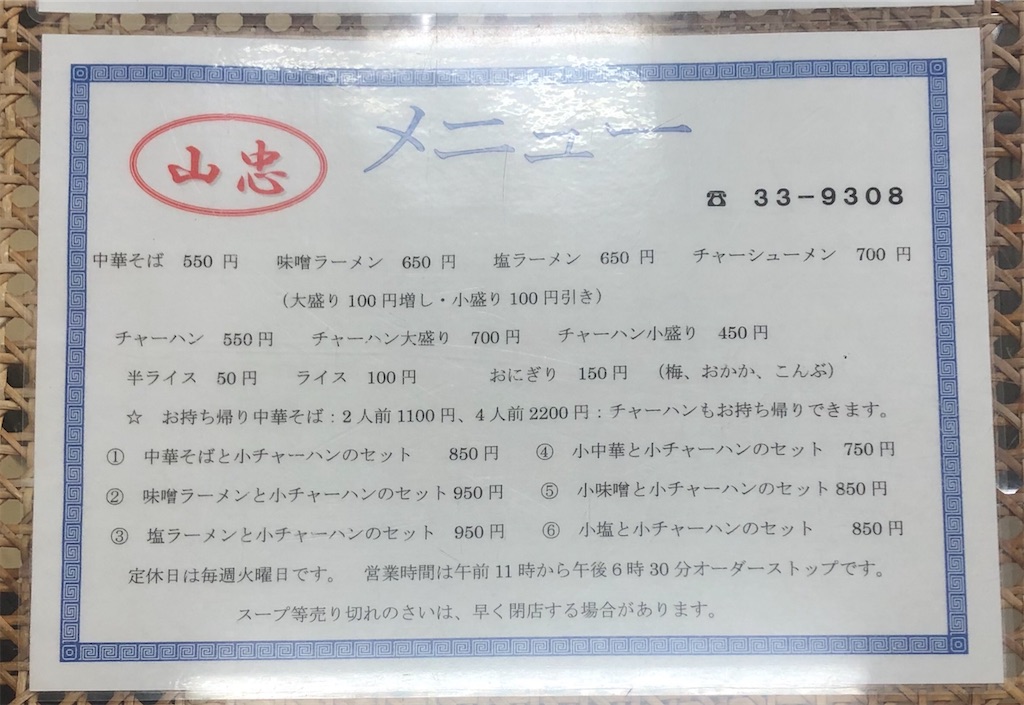 メニュー
山忠
☎ 33－9308
中華そば 550円 味噌ラーメン 650円 塩ラーメン 650円 チャーシューメン 700円
（大盛り100円増し・小盛り100円引き）
チャーハン 550円 チャーハン大盛り 700円 チャーハン小盛り 450円
半ライス 50円 ライス 100円 おにぎり 150円 （梅、おかか、こんぶ）
☆ お持ち帰り中華そば：2人前1100円、4人前2200円：チャーハンもお持ち帰りできます。
① 中華そばと小チャーハンのセット 850円 ④ 小中華と小チャーハンのセット 750円
② 味噌ラーメンと小チャーハンのセット950円 ⑤ 小味噌と小チャーハンのセット850円
③ 塩ラーメンと小チャーハンのセット 950円 ⑥ 小塩と小チャーハンのセット 850円
定休日は毎週火曜日です。 営業時間は午前11時から午後6時30分オーダーストップです。
スープ等売り切れのさいは、早く閉店する場合があります。